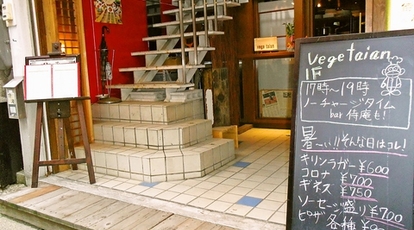 vegetaian
IF
17時～19時
ノーチャージタイム
bar 侍庵も!
暑～い!!そんな日はコレ!
キリンラガー ¥600
コロナ ¥700
ギネス ¥750
ソーセージ盛り ¥700
ピザ 各種